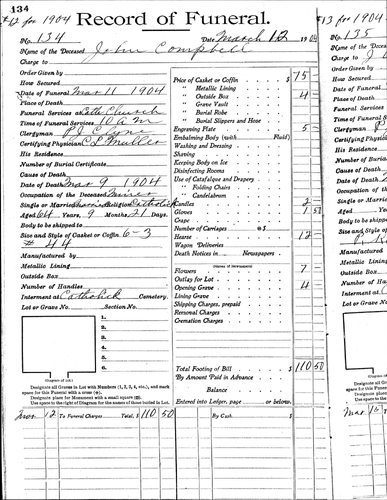 134
#12 for 1904
Record of Funeral.
No. 134
Date March 12 190
Name of the Deceased John Campbell
Charge to
Order Given by
How Secured
Date of Funeral Mar 11 1904
Place of Death
Funeral Services at Cath Church
Time of Funeral Services 10 a m
Clergyman P. J. Clyne
Certifying Physician C L Muller
His Residence
Number of Burial Certificate
Cause of Death
Date of Death Mar 9 1904
Occupation of the Deceased Miner
Single or Married Religion Catholick
Aged 64 Years, 9 Months 21 Days
Body to be shipped to
Size and Style of Casket or Coffin 6-3
#44
Manufactured by
Metallic Lining
Outside Box
Number of Handles
Interment at Catholick Cemetery.
Lot or Grave No. Section No.
1.
2.
3.
4.
5.
6.
(Diagram of Lot.)
Designate all Graves in Lot with Numbers (1, 2, 3, 4, etc.), and mark
space for this Funeral with a cross (x).
Designate place for Monument with a small square
Use space to the right of Diagram for the names of those buried in Lot.
Price of Casket or Coffin $ 75
" Metallic Lining
" Outside Box 4
" Grave Vault
" Burial Robe
" Burial Slippers and Hose
Engraving Plate 5
Embalming Body (with Fluid)
Washing and Dressing
Shaving
Keeping Body on Ice
Disinfecting Rooms
Use of Catafalque and Drapery
" Folding Chairs
" Candelabrum
Candles 2
Gloves 1 50
Crape
Number of Carriages @ $
Hearse 12
Wagon Deliveries
Death Notices in Newspapers
Flowers 7
Outlay for Lot
Opening Grave 4
Lining Grave
Shipping Charges, prepaid
Personal Charges
Cremation Charges
Total Footing of Bill $ 110 50
By Amount Paid in Advance
Balance
Entered into Ledger, page or below.
Mar 12 To Funeral Charges Total, $ 110 50
By Cash $
#13 for 1904
No. 135
Name of the Deceased
Charge to
Order Given by
How Secured
Date of Funeral
Place of Death
Funeral Services
Time of Funeral
Clergyman
Certifying Phys
His Residence
Number of Burial
Cause of Death
Date of Death
Occupation of the
Single or Married
Aged
Body to be shipped
Size and Style of
Manufactured by
Metallic Lining
Outside Box
Number of Handles
Interment at
Lot or Grave No.
(Diagram of Lot.)
Designate all G
space for this Fun
Designate place
Use space to the
Mar 15